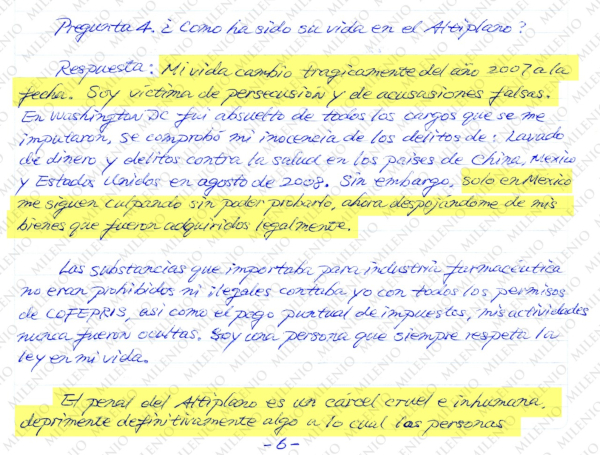 Pregunta 4. ¿Como ha sido su vida en el Altiplano?
Respuesta: Mi vida cambio tragicamente del año 2007 a la
fecha. Soy victima de persecusion y de acusasiones falsas.
En Washington DC fui absuelto de todos los cargos que se me
imputaron, se comprobó mi inocencia de los delitos de: Lavado
de dinero y delitos contra la salud en los paises de China, Mexico
y Estados Unidos en agosto de 2008. Sin embargo, solo en Mexico
me siguen culpando sin poder probarlo, ahora despojandome de mis
bienes que fueron adquiridos legalmente.
Las substancias que importaba para industria farmacéutica
no eran prohibidos ni ilegales contaba yo con todos los permisos
de COFEPRIS, asi como el pago puntual de impuestos, mis actividades
nunca fueron ocultas. Soy una persona que siempre respeta la
ley en mi vida.
El penal del Altiplano es un cárcel cruel e inhumana,
deprimente definitivamente algo a lo cual las personas
-6-
MILENIO